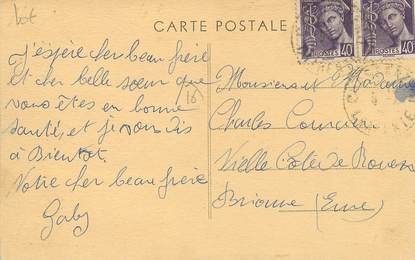 lot
CARTE POSTALE
POSTES 40
POSTES 40
J'espère cher beau frère
et cher belle sœur que
vous êtes en bonne
santé et je vous dis
à Bientot.
Votre cher beau frère
Gaby
(18)
Monsieur et Madame
Charles
Vielle Cote de Rouen
Brionne (Eure)